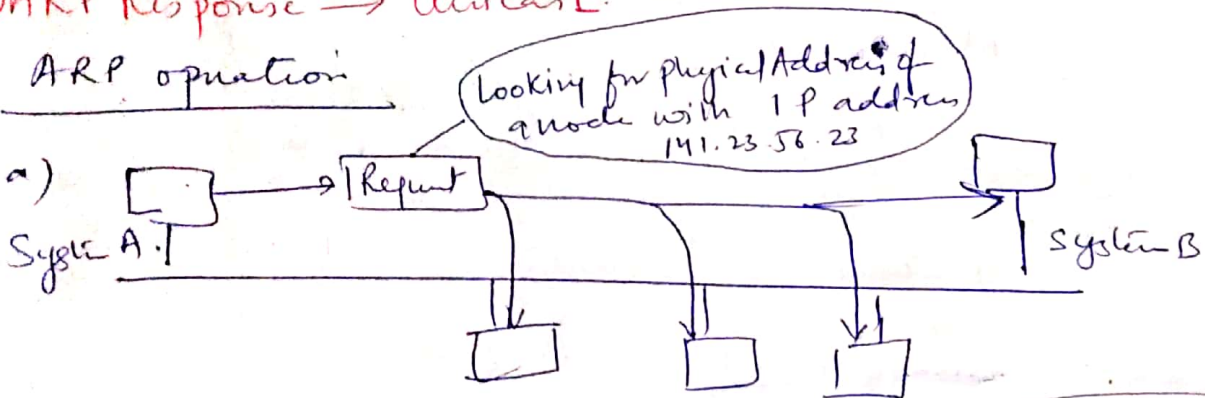 ARP Response → Unicast.
ARP opration
Looking for phyical Address of
a node with IP address
141.23.56.23
a)
Request
System A.
System B